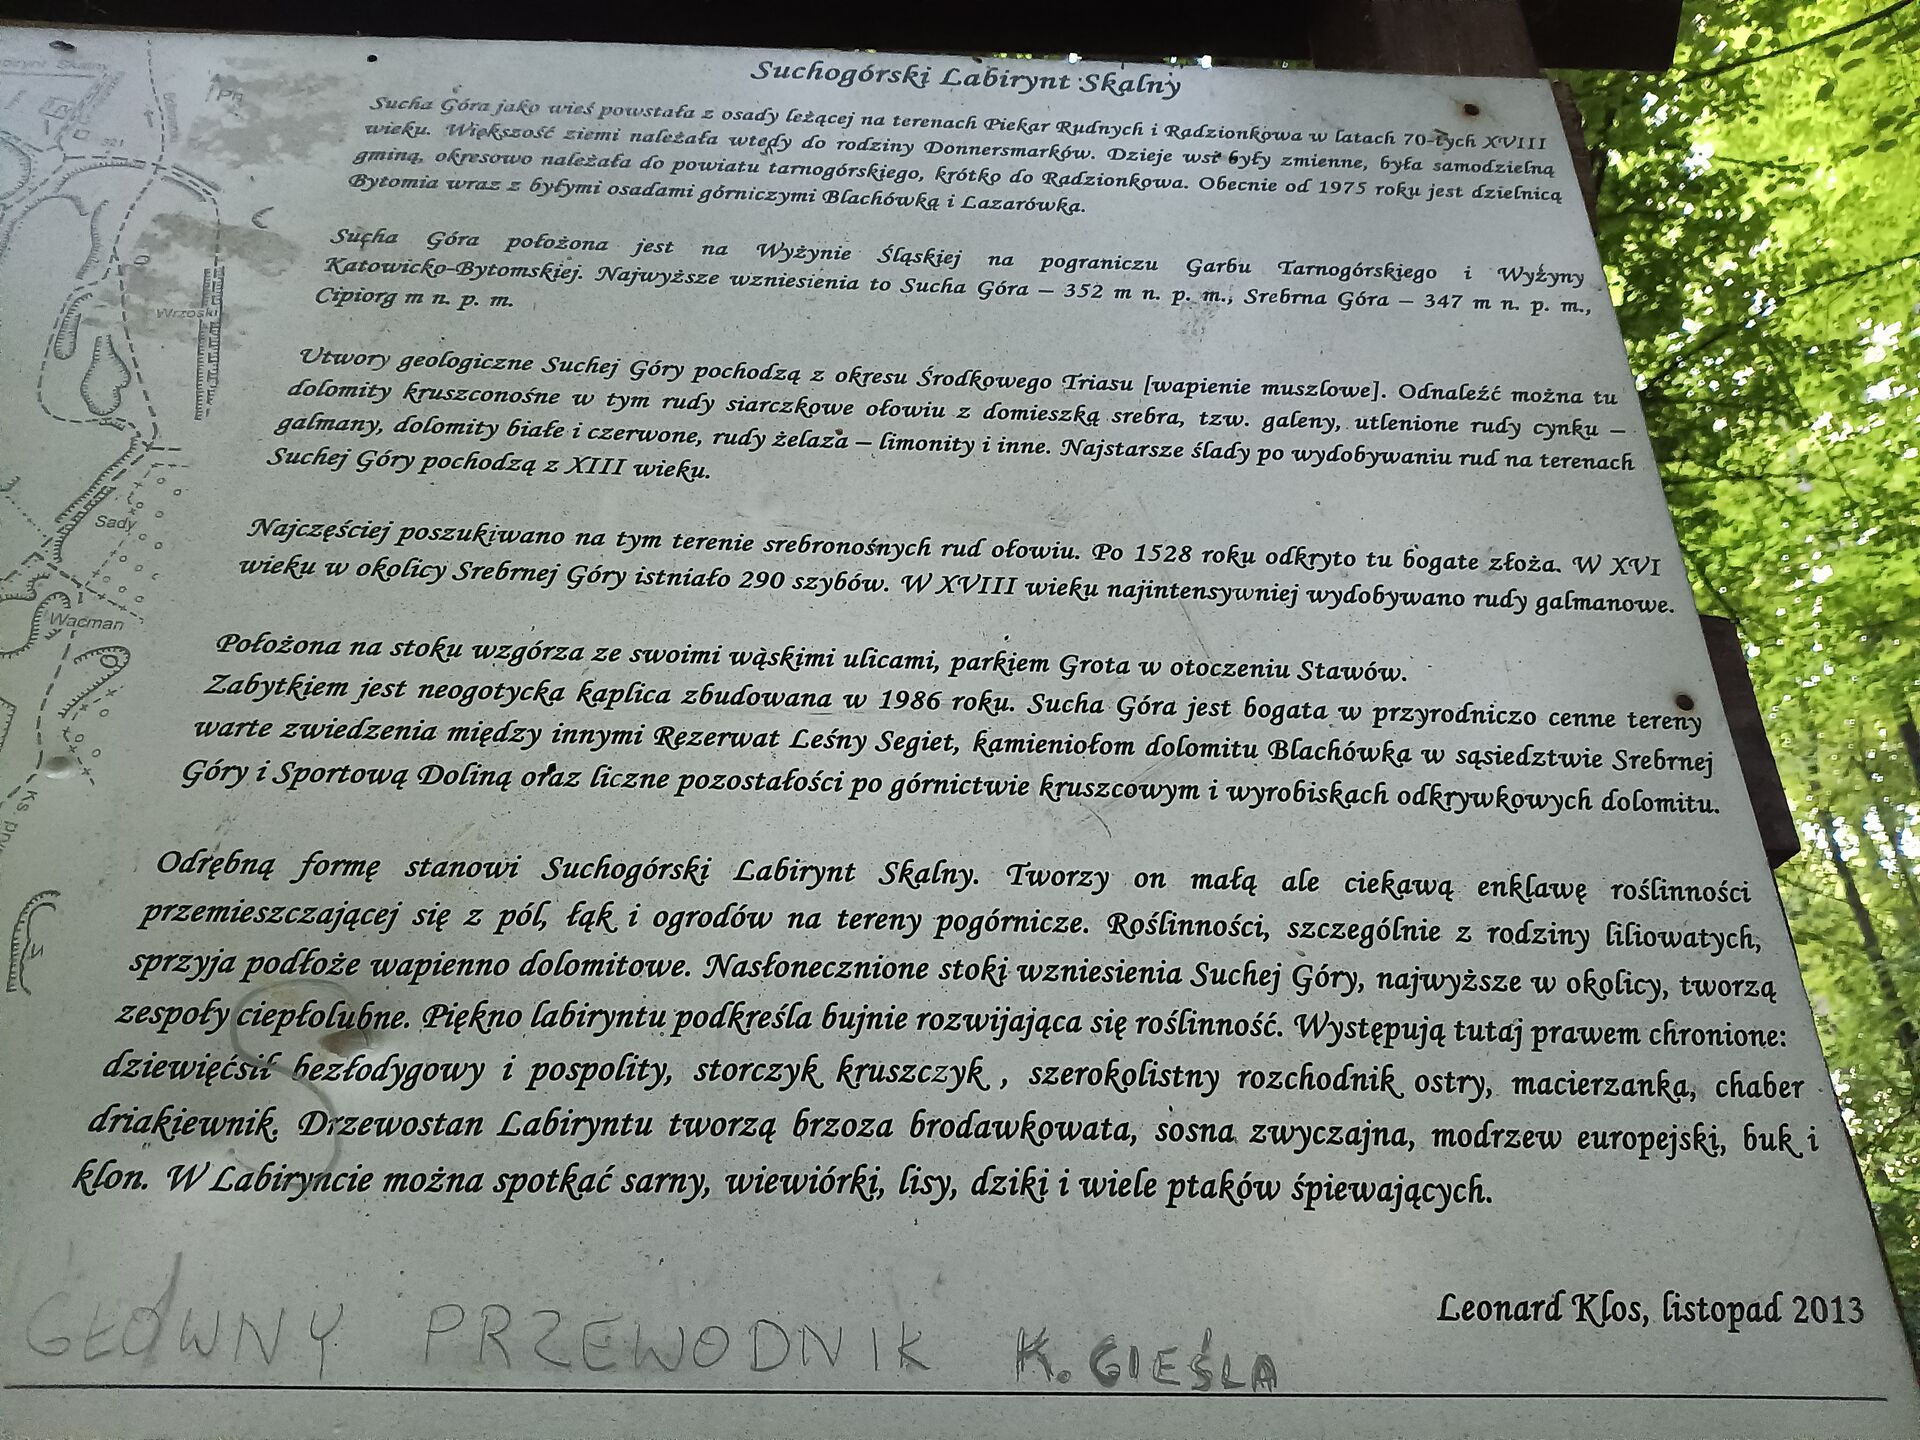 Suchogórski Labirynt Skalny
Sucha Góra jako wieś powstała z osady leżącej na terenach Piekar Rudnych i Radzionkowa w latach 70-tych XVIII
wieku. Większość ziemi należała wtedy do rodziny Donnersmarków. Dzieje wsi były zmienne, była samodzielną
gminą, okresowo należała do powiatu tarnogórskiego, krótko do Radzionkowa. Obecnie od 1975 roku jest dzielnicą
Bytomia wraz z byłymi osadami górniczymi Blachówką i Lazarówką.
Sucha Góra położona jest na Wyżynie Śląskiej na pograniczu Garbu Tarnogórskiego i Wyżyny
Katowicko-Bytomskiej. Najwyższe wzniesienia to Sucha Góra – 352 m n. p. m., Srebrna Góra – 347 m n. p. m.,
Cipiorg m n. p. m.
Utwory geologiczne Suchej Góry pochodzą z okresu Środkowego Triasu [wapienie muszlowe]. Odnaleźć można tu
dolomity kruszconośne w tym rudy siarczkowe ołowiu z domieszką srebra, tzw. galeny, utlenione rudy cynku –
galmany, dolomity białe i czerwone, rudy żelaza – limonity i inne. Najstarsze ślady po wydobywaniu rud na terenach
Suchej Góry pochodzą z XIII wieku.
Najczęściej poszukiwano na tym terenie srebronośnych rud ołowiu. Po 1528 roku odkryto tu bogate złoża. W XVI
wieku w okolicy Srebrnej Góry istniało 290 szybów. W XVIII wieku najintensywniej wydobywano rudy galmanowe.
Położona na stoku wzgórza ze swoimi wąskimi ulicami, parkiem Grota w otoczeniu Stawów.
Zabytkiem jest neogotycka kaplica zbudowana w 1986 roku. Sucha Góra jest bogata w przyrodniczo cenne tereny
warte zwiedzenia między innymi Rezerwat Leśny Segiet, kamieniołom dolomitu Blachówka w sąsiedztwie Srebrnej
Góry i Sportową Doliną oraz liczne pozostałości po górnictwie kruszcowym i wyrobiskach odkrywkowych dolomitu.
Odrębną formę stanowi Suchogórski Labirynt Skalny. Tworzy on małą ale ciekawą enklawę roślinności
przemieszczającej się z pól, łąk i ogrodów na tereny pogórnicze. Roślinności, szczególnie z rodziny liliowatych,
sprzyja podłoże wapienno dolomitowe. Nasłonecznione stoki wzniesienia Suchej Góry, najwyższe w okolicy, tworzą
zespoły ciepłolubne. Piękno labiryntu podkreśla bujnie rozwijająca się roślinność. Występują tutaj prawem chronione:
dziewięćsił bezłodygowy i pospolity, storczyk kruszczyk , szerokolistny rozchodnik ostry, macierzanka, chaber
driakiewnik. Drzewostan Labiryntu tworzą brzoza brodawkowata, sosna zwyczajna, modrzew europejski, buk i
klon. W Labiryncie można spotkać sarny, wiewiórki, lisy, dziki i wiele ptaków śpiewających.
Leonard Klos, listopad 2013
GŁÓWNY PRZEWODNIK K. GIEŚLA
Wrzoski
Sady
Wacman